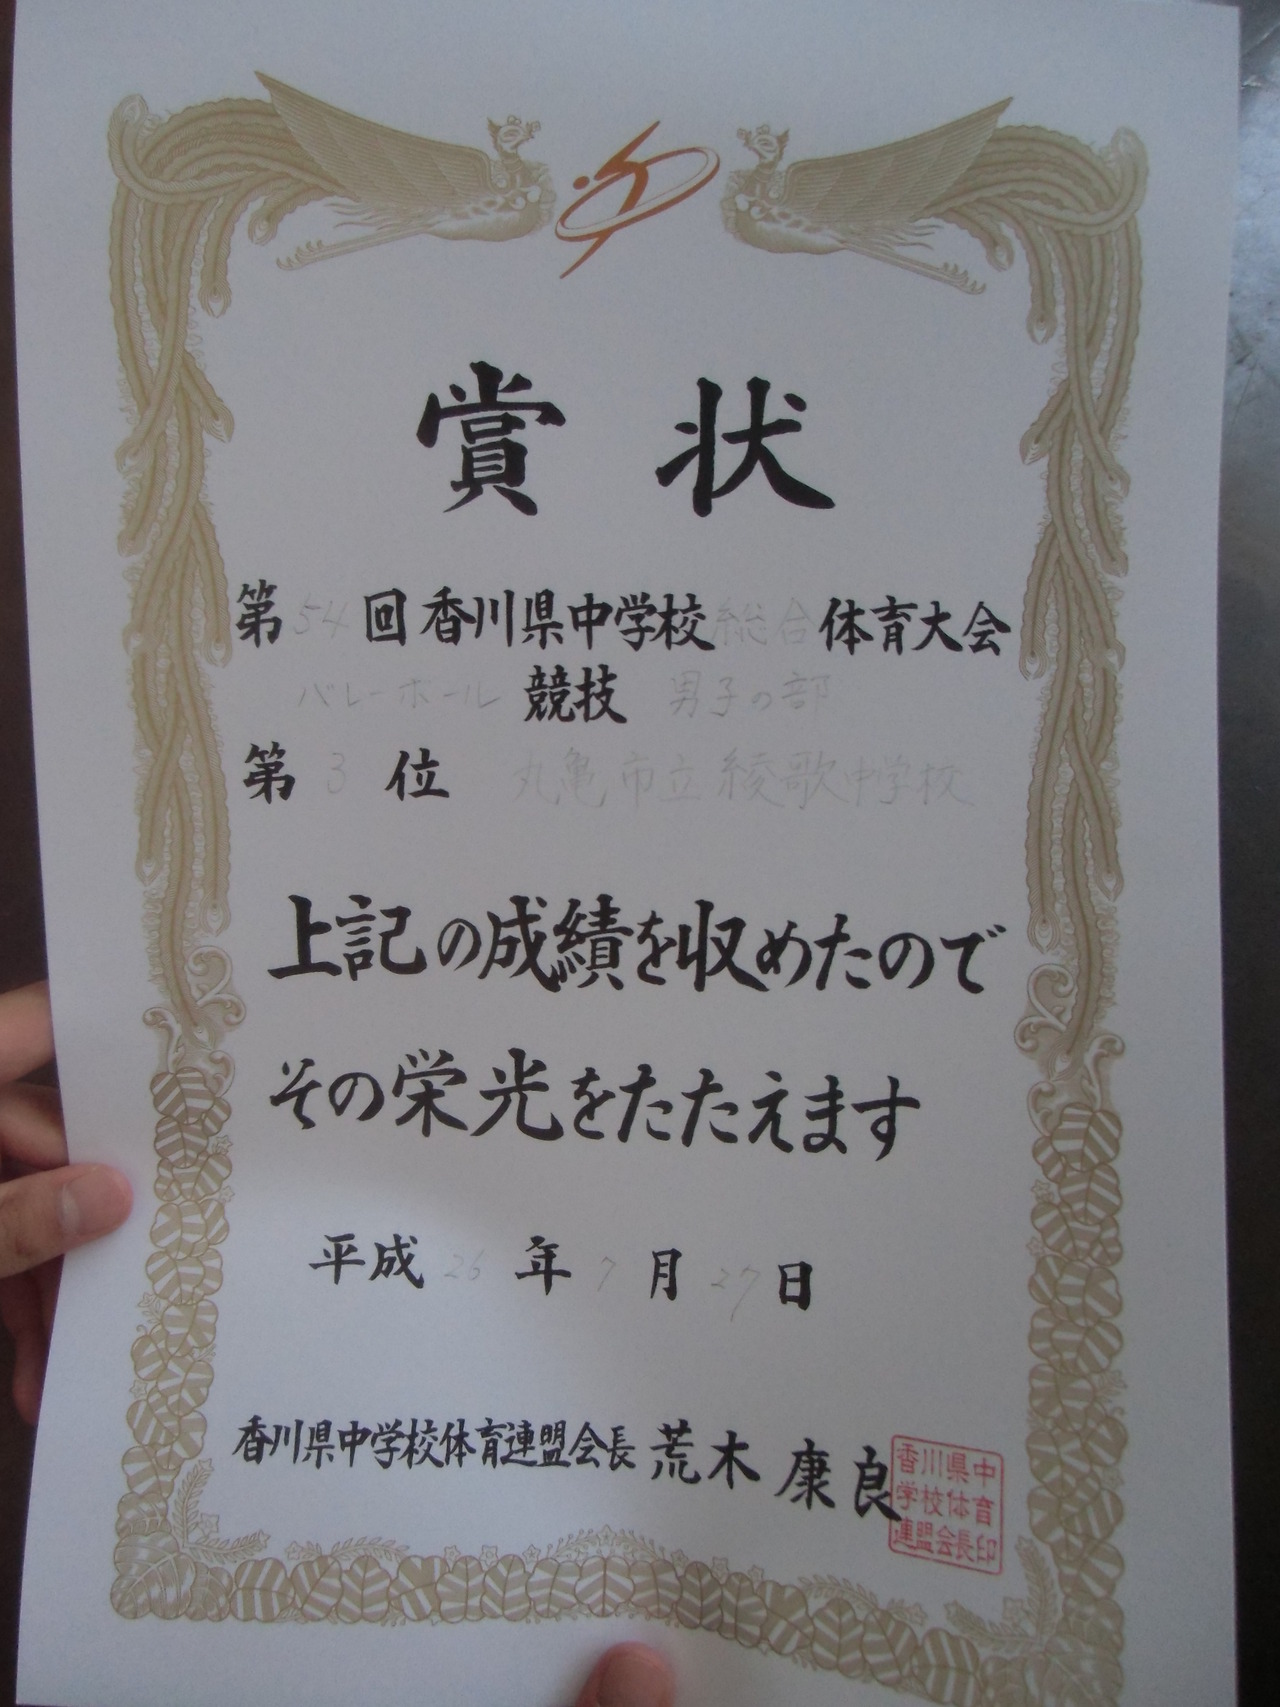 賞状
第54回香川県中学校総合体育大会
バレーボール競技 男子の部
第3位 丸亀市立綾歌中学校
上記の成績を収めたので
その栄光をたたえます
平成26年7月27日
香川県中学校体育連盟会長 荒木康良
香川県中
学校体育
連盟会長印